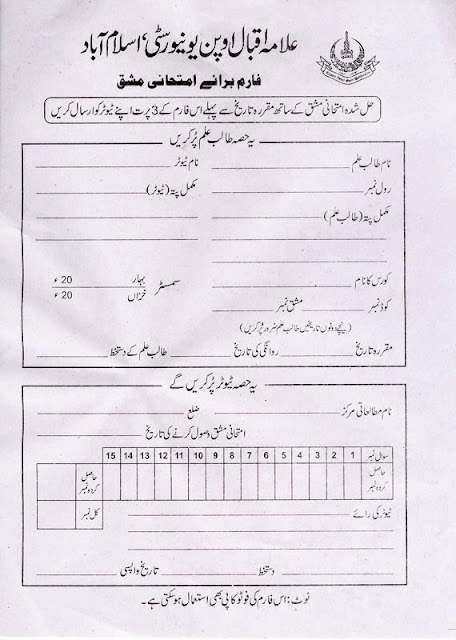 علامہ اقبال اوپن یونیورسٹی، اسلام آباد
فارم برائے امتحانی مشق
حل شدہ امتحانی مشق کے ساتھ مقررہ تاریخ سے پہلے اس فارم کے 3 پرت اپنے ٹیوٹر کو ارسال کریں
یہ حصہ طالب علم پُر کریں
نام طالب علم نام ٹیوٹر
رول نمبر مکمل پتہ (ٹیوٹر)
مکمل پتہ (طالب علم)
کورس کا نام سمسٹر بہار 20ء
خزاں 20ء
کوڈ نمبر مشق نمبر
(نیچے دونوں تاریخیں طالب علم ضرور پُر کریں)
مقررہ تاریخ روانگی کی تاریخ طالب علم کے دستخط
یہ حصہ ٹیوٹر پُر کریں گے
نام مطالعاتی مرکز ضلع
امتحانی مشق وصول کرنے کی تاریخ
سوال نمبر 1 2 3 4 5 6 7 8 9 10 11 12 13 14 15
حاصل کردہ نمبر حاصل کردہ نمبر
کل نمبر
ٹیوٹر کی رائے
دستخط تاریخ واپسی
نوٹ: اس فارم کی فوٹو کاپی بھی استعمال ہو سکتی ہے۔